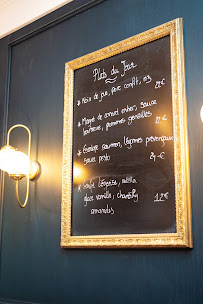 Plats du Jour
* Noix de joue, porc confit, riz
22 €
* Magret de canard entier, sauce
bordelaise, pommes grenailles
22 €
* saumon, légumes provençaux
sauce pesto
24 €
* Soufflé glacé, nutella,
glace vanille, chantilly
amandes
12 €